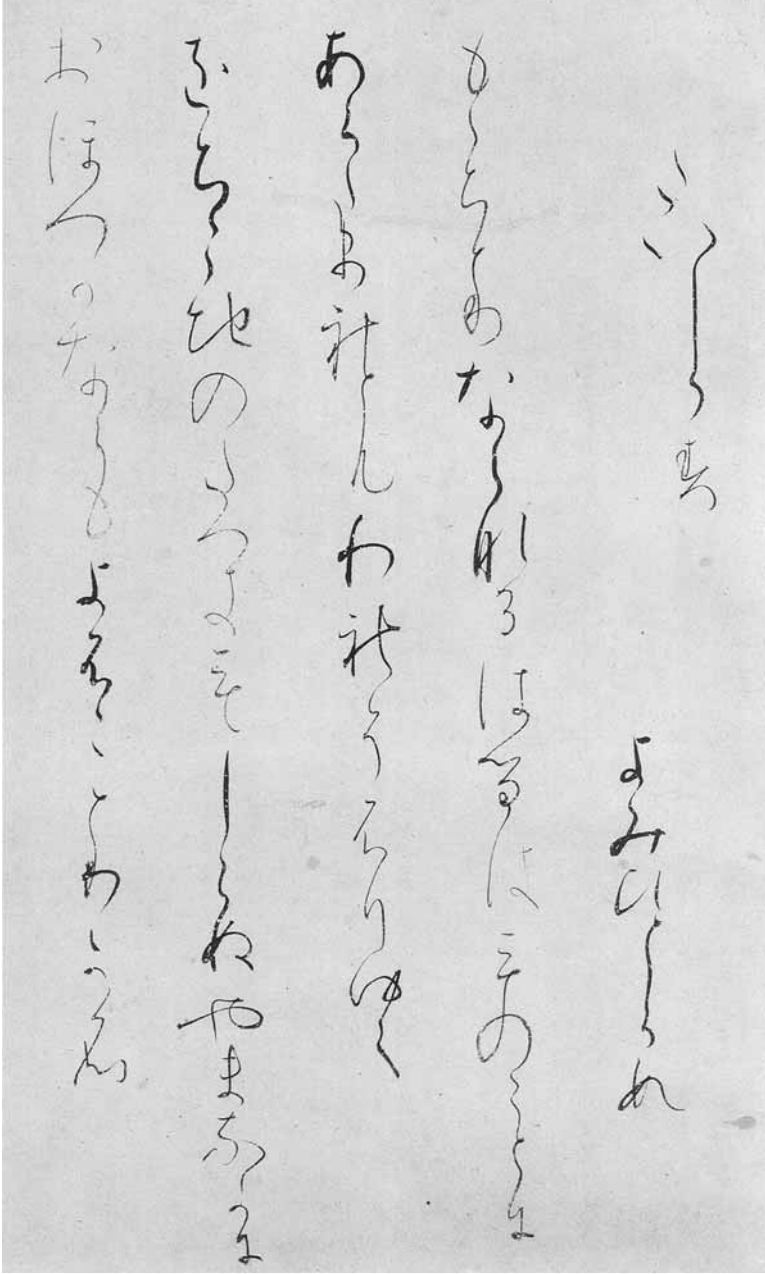 たいしらす　よみひとしらす
もゝちとりなくなるはるはものことに
あらたまれともわれそふりゆく
をちこちのたつきもしらぬやまなかに
おほつかなくもよふことりかな